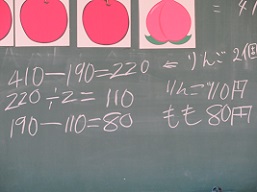 = 4
410-190=220 ← りんご2個
220÷2=110 りんご110円
190-110=80 もも80円